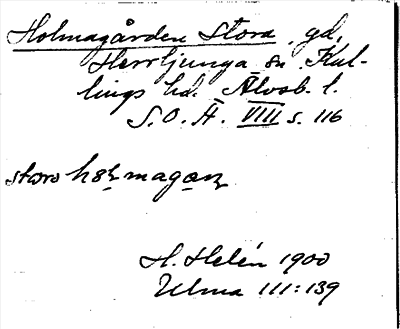 Holmagården Stora, gd,
Herrljunga sn Kul-
lings hd. Älvsb. l.
S.O.Ä. VIII s. 116
H. Helén 1900
Ulma 111:139